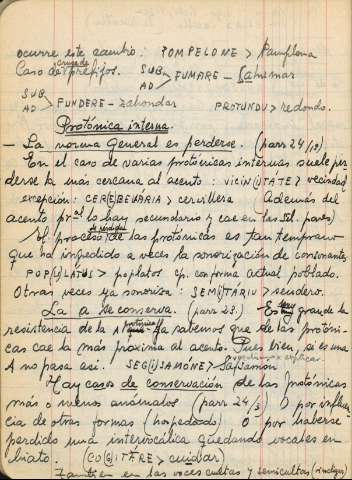 ocurre este acento: POMPELONE > Pamplona
Caso de cruce de prefijos. SUB AD > FUMARE - Sahumar
SUB AD > FUNDERE - Zahondar PROTUNDU > redondo.
Protónica interna.
- La norma general es perderse. (parr 24/12)
En el caso de varias protónicas internas suele per-
derse la más cercana al acento: VICIN(I)TÁTE > vecindad
excepción: CER(E)BELLARIA > cervillera Además del
acento pral lo hay secundario y cae en las síl. pares)
El proceso de pérdida de las protónicas es tan temprano
que ha impedido a veces la sonorización de consonantes.
POP(U)LATUS > poplatos cp. con forma actual poblado.
Otras veces ya sonoriza: SEM(I)TARIU > sendero.
La a se conserva. (parr 23.) Es muy grande la
resistencia de la A protónica. Ya sabemos que de las protóni-
cas cae la más próxima al acento. Pues bien, si es una
A no pasa así. SEG(I)SAMÓNE > Sasamón
Hay casos de conservación de las protónicas
más o menos anómalos (parr 24/3) O por influen-
cia de otras formas (hospedado) O por haberse
perdido una intervocálica quedando vocales en
hiato. (CO(G)ITARE > cuidar)
También en las voces cultas y semicultas